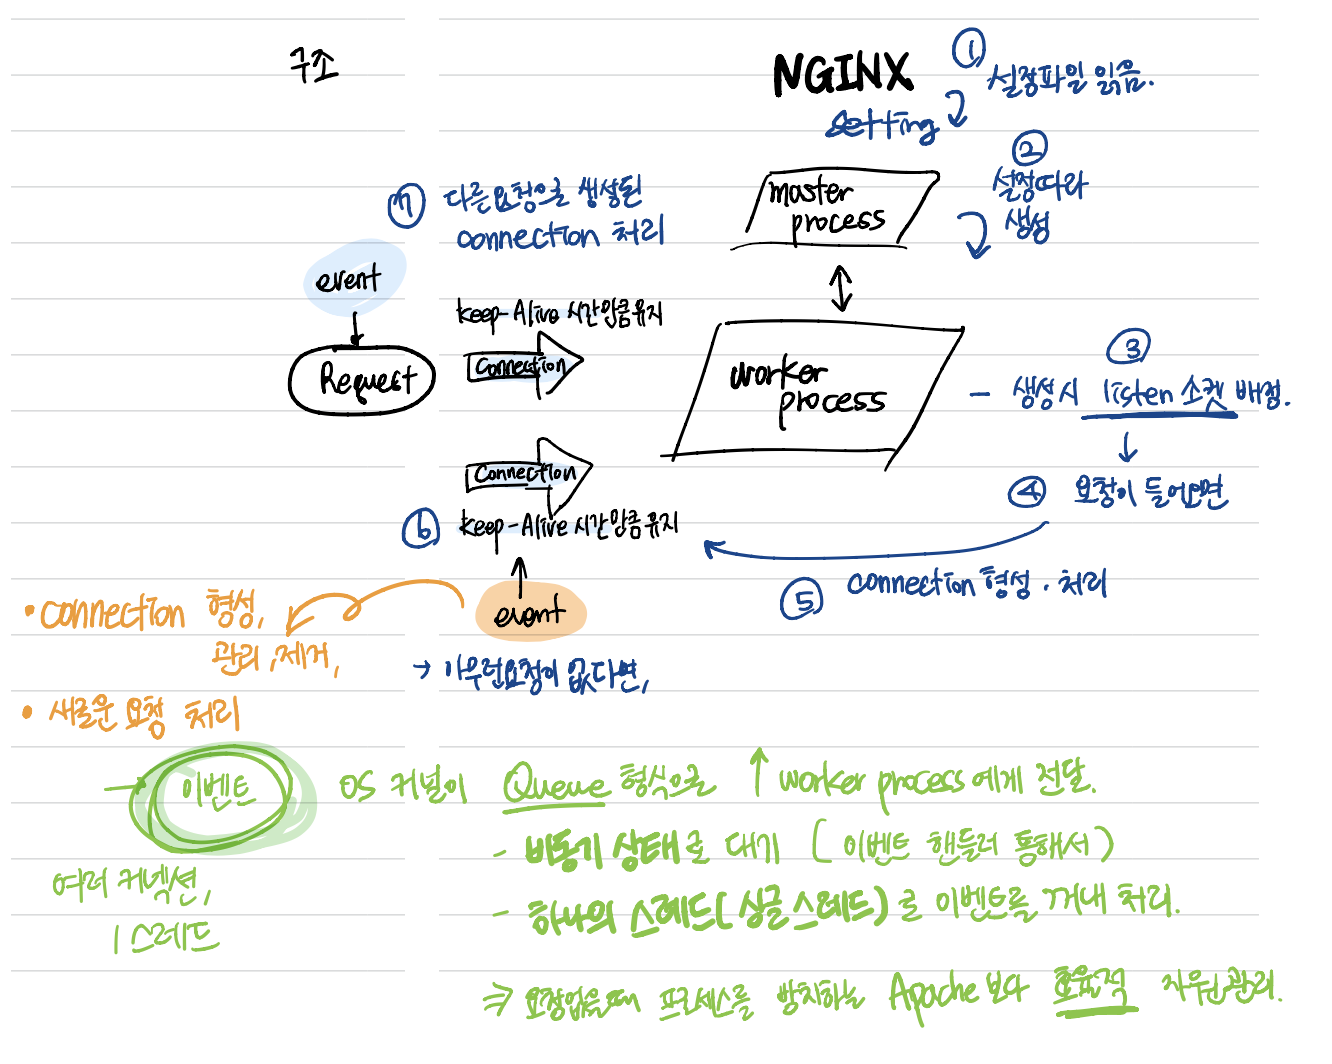 구조
NGINX
setting
① 설정파일 읽음.
② 설정따라
생성
master
process
⑦ 다른요청으로 생성된
connection 처리
event
Request
keep-Alive 시간만큼유지
Connection
worker
process
③
- 생성시 listen 소켓 배정.
④ 요청이 들어오면
⑤ connection 형성·처리
Connection
⑥ keep-Alive 시간만큼유지
event
→ 아무런요청이 없다면,
• connection 형성,
관리,제거,
• 새로운 요청 처리
→ 이벤트
여러 커넥션,
1 스레드
OS 커널이 Queue 형식으로 ↑ worker process에게 전달.
- 비동기 상태로 대기 (이벤트 핸들러 통해서)
- 하나의 스레드(싱글스레드)로 이벤트를 꺼내 처리.
⇒ 요청없을때 프로세스를 방치하는 Apache보다 효율적 자원관리.